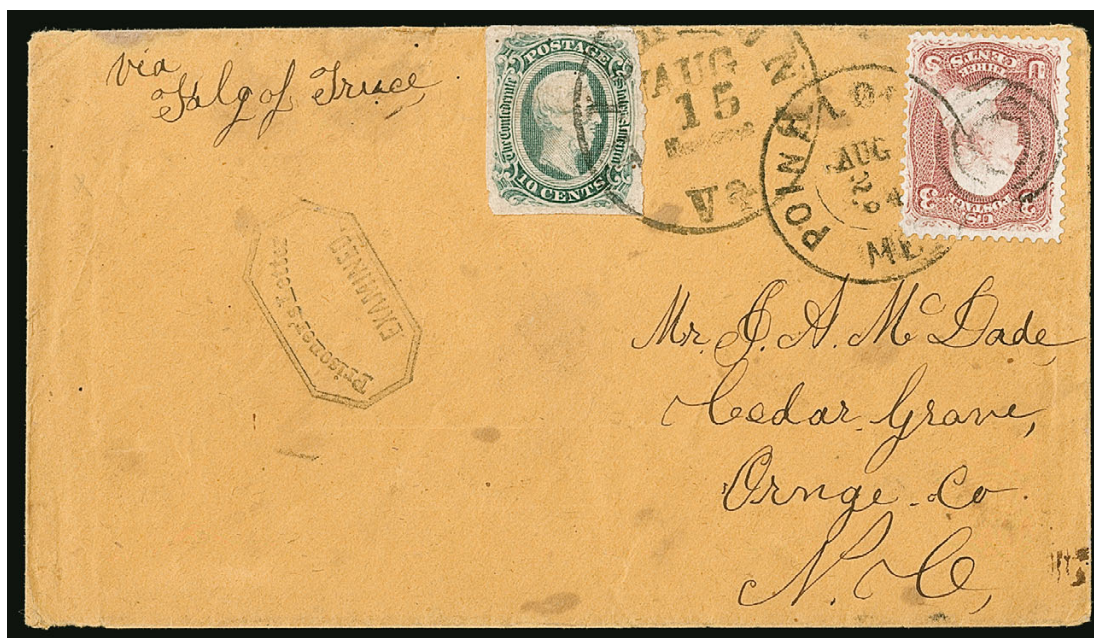 via
Falg of Truce
POSTAGE
The Confederate States of America
10 CENTS
AUG
15
Va
PO
AUG
24
MD
U 3
THREE
CENTS
U.S.
POSTAGE
3 3
Prisoner's Letter
EXAMINED.
Mr. J. A. McDade
Cedar Grove,
Ornge Co
N. C,